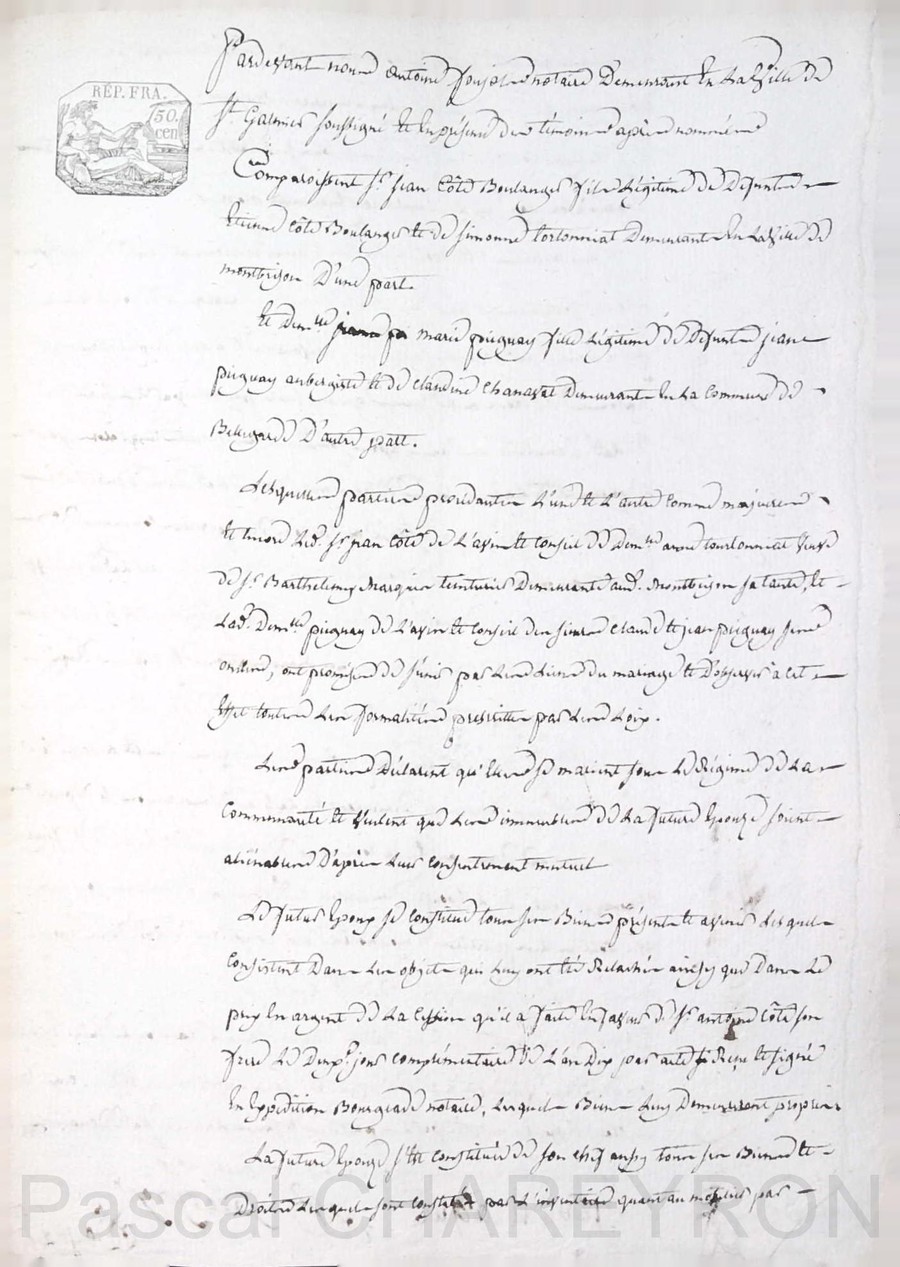 RÉP. FRA.
50
cen
Pardevant nous Antoine notaire Demeurant En La Ville de
St. Galmier soussigné Et En présence des témoins après nommés
Comparoissent Sr. Jean Côte Boulanger fils Légitime de Défunts
Etienne Côte Boulanger Et de Simonne tortonniat Demeurants En La Ville de
montbrison D'une part.
Et Demlle marie piegnay fille Légitime de Défunts jean
piegnay aubergiste Et de Claudine Chanavat Demeurants En La Commune de
Bellegarde D'autre part.
Lesquelles parties procédantes L'une Et L'autre Comme majeures
Et Encore Led. Sr. Jean Côte de L'avis Et Conseil de Demlle anne tortonniat Veuve
de Sr. Barthelemy Marquis teinturier Demeurante aud. Montbrison sa tante, Et
Lad. Demlle piegnay de L'avis Et Conseil des Sieurs Claude Et jean piegnay ses
oncles, ont promis de s'unir par Les Liens du mariage Et D'observer à cet
Effet toutes Les formalités prescrittes par Les Loix.
Les parties Déclarent qu'Elles se marient sous Le Régime de La
Communauté Et Veulent que Les immeubles de La future Epouse soient
aliénables D'après Leur Consentement mutuel
Le futur Epoux se Constitue tous ses Biens présents Et avenir Lesquels
Consistent Dans Les objets qui Luy ont été Relachés ainsy que Dans Le
prix En argent de La Cession qu'il a faite En faveur de Sr. antoine Côte son
frère Le jour complémentaire de L'an Dix par acte Reçu Et signé
En Expédition Bourgeade notaire, Lesquels Biens Luy Demeureront propres.
La future Epouse s'Est Constituée de son chef aussy tous ses Biens Et
Droits Lesquels sont Constatés par L'inventaire quant au mobilier par
Pascal CHAREYRON